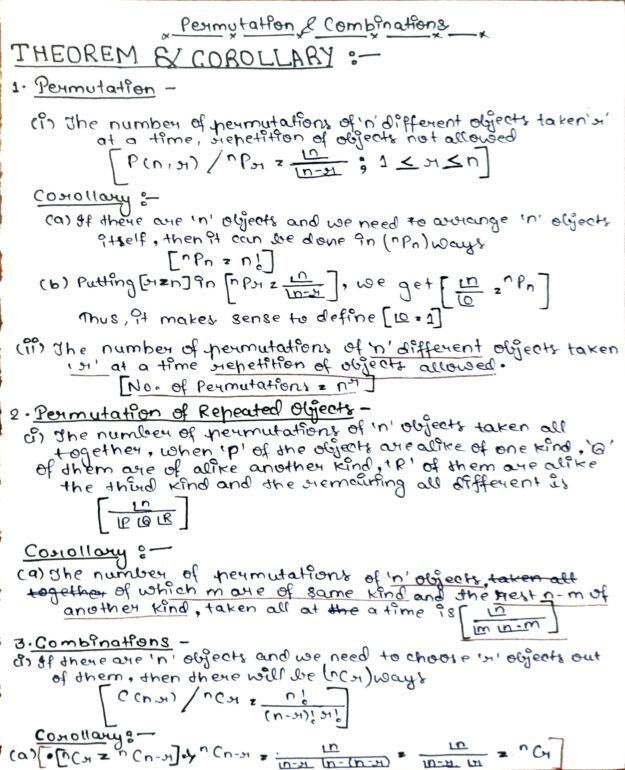 Permutation & Combinations
THEOREM & COROLLARY :-
1. Permutation -
(i) The number of permutations of 'n' different objects taken 'r'
at a time, repetition of objects not allowed
[P(n,r) / ⁿPr = ⌊n / ⌊n-r ; 1 ≤ r ≤ n]
Corollary :-
(a) If there are 'n' objects and we need to arrange 'n' objects
itself, then it can be done in (ⁿPn) ways
[ⁿPn = n!]
(b) Putting [r=n] in [ⁿPr = ⌊n / ⌊n-r], we get [⌊n / ⌊0 = ⁿPn]
Thus, it makes sense to define [⌊0 = 1]
(ii) The number of permutations of 'n' different objects taken
'r' at a time repetition of objects allowed.
[No. of Permutations = nʳ]
2. Permutation of Repeated Objects -
(i) The number of permutations of 'n' objects taken all
together, when 'P' of the objects are alike of one kind, 'Q'
of them are of alike another kind, 'R' of them are alike
the third kind and the remaining all different is
[⌊n / ⌊P ⌊Q ⌊R]
Corollary :-
(a) The number of permutations of 'n' objects, taken all
together of which m are of same kind and the rest n-m of
another kind, taken all at the a time is [⌊n / ⌊m ⌊n-m]
3. Combinations -
(i) If there are 'n' objects and we need to choose 'r' objects out
of them, then there will be (ⁿCr) ways
[C(n,r) / ⁿCr = n! / (n-r)! r!]
Corollary :-
(a) [• [ⁿCr = ⁿCn-r] ⁿCn-r = ⌊n / ⌊n-r ⌊n-(n-r) = ⌊n / ⌊n-r ⌊r = ⁿCr]